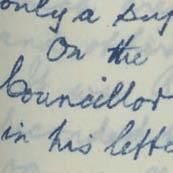 only a
On the
Councillor
in his lette